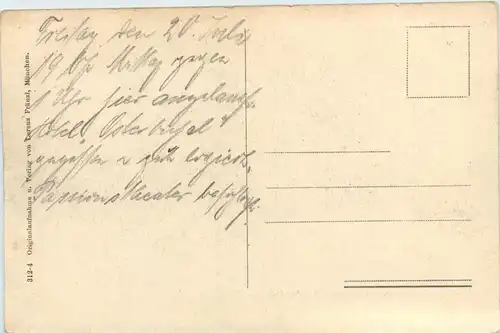 Freitag den 20. Juli
19 Mittag gegen
1 Uhr hier angelangt
Hotel "Osterbichl"
gegessen u. gut logiert.
Passionstheater besichtigt.
312-4 Originalaufnahme u. Verlag von Lorenz Fränzl, München.